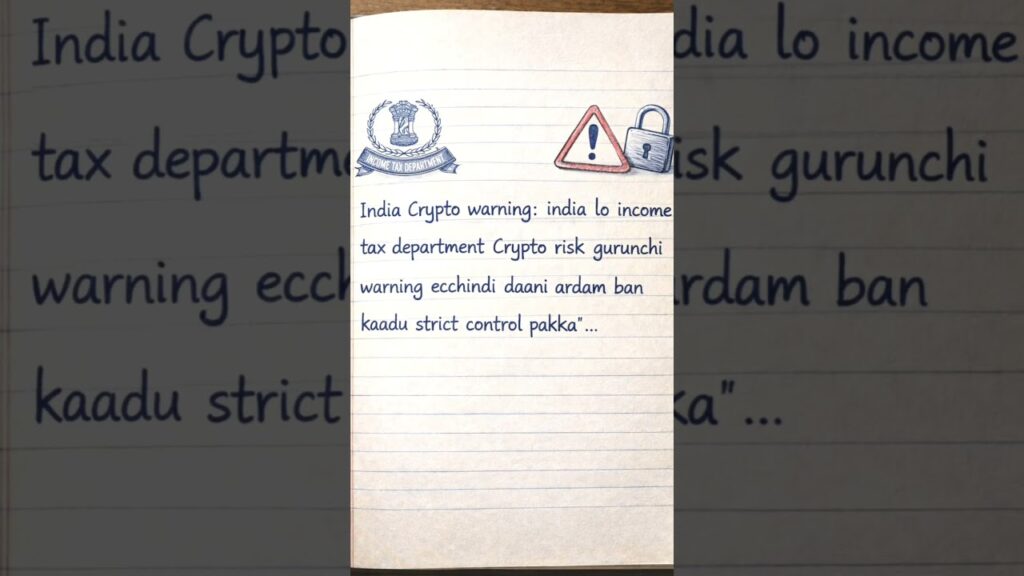 INCOME TAX DEPARTMENT
India Crypto warning: india lo income
tax department Crypto risk gurunchi
warning ecchindi daani ardam ban
kaadu strict control pakka"...
India Crypto
tax departme
warning ecch
kaadu strict
dia lo income
isk gurunchi
rdam ban
ka"...